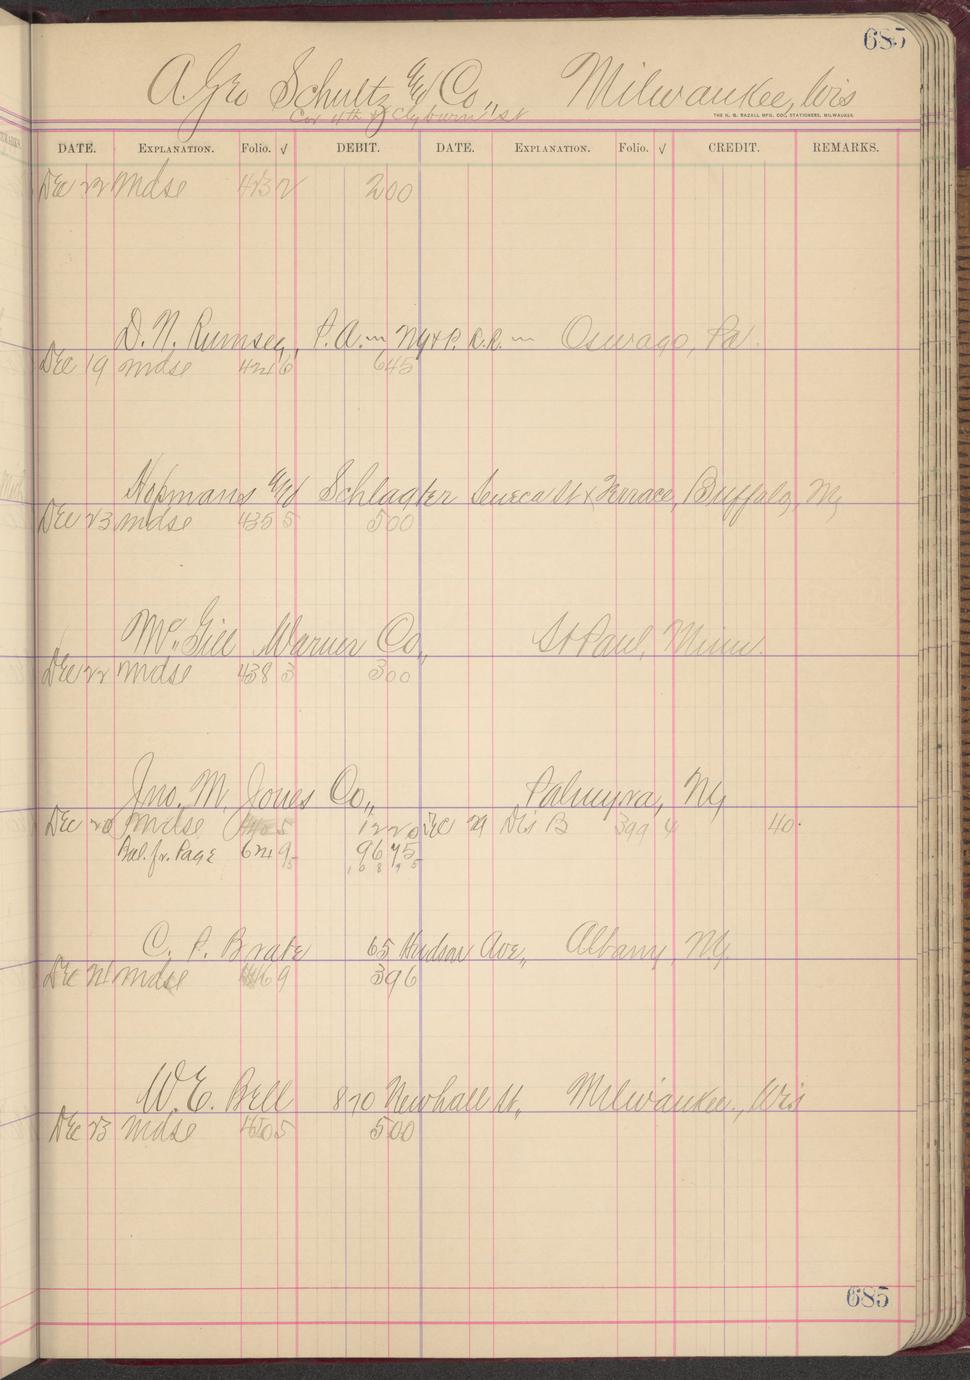 685
A. Geo Schultz and Co., Milwaukee, Wis
Cor 4th & Clyburn st
THE H. G. RAZALL MFG. CO., STATIONERS, MILWAUKEE.
DATE. EXPLANATION. Folio. √ DEBIT. DATE. EXPLANATION. Folio. √ CREDIT. REMARKS.
Dec 22 Mdse 423 2 200
D. N. Rumsey, P.A. " NY & P. R.R. " Oswago, Pa.
Dec 19 Mdse 424 6 645
Hopmans and Schlagter Seneca St & Terrace, Buffalo, NY
Dec 23 Mdse 435 5 500
Mc Gill Warner Co., St Paul, Minn.
Dec 22 Mdse 438 3 300
Jno. M. Jones Co., Palmyra, NY
Dec 20 Mdse 5 1220 Dec 29 Dis B 399 4 40
Bal. fr. Page 624 9 9675
10895
C. P. Brate 65 Hudson Ave., Albany, NY.
Dec 21 Mdse 9 396
W. E. Bell 870 Newhall St., Milwaukee., Wis
Dec 23 Mdse 450 5 500
685